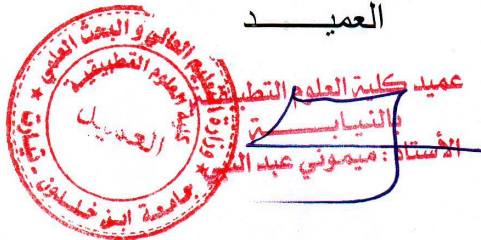 العميــــــد
عميد كلية العلوم التطبيقية
بالنيابـــــــة
الأستاذ : ميموني عبد النبي
وزارة التعليم العالي و البحث العلمي
جامعة ابن خلدون - تيارت
كلية العلوم التطبيقية
العميد